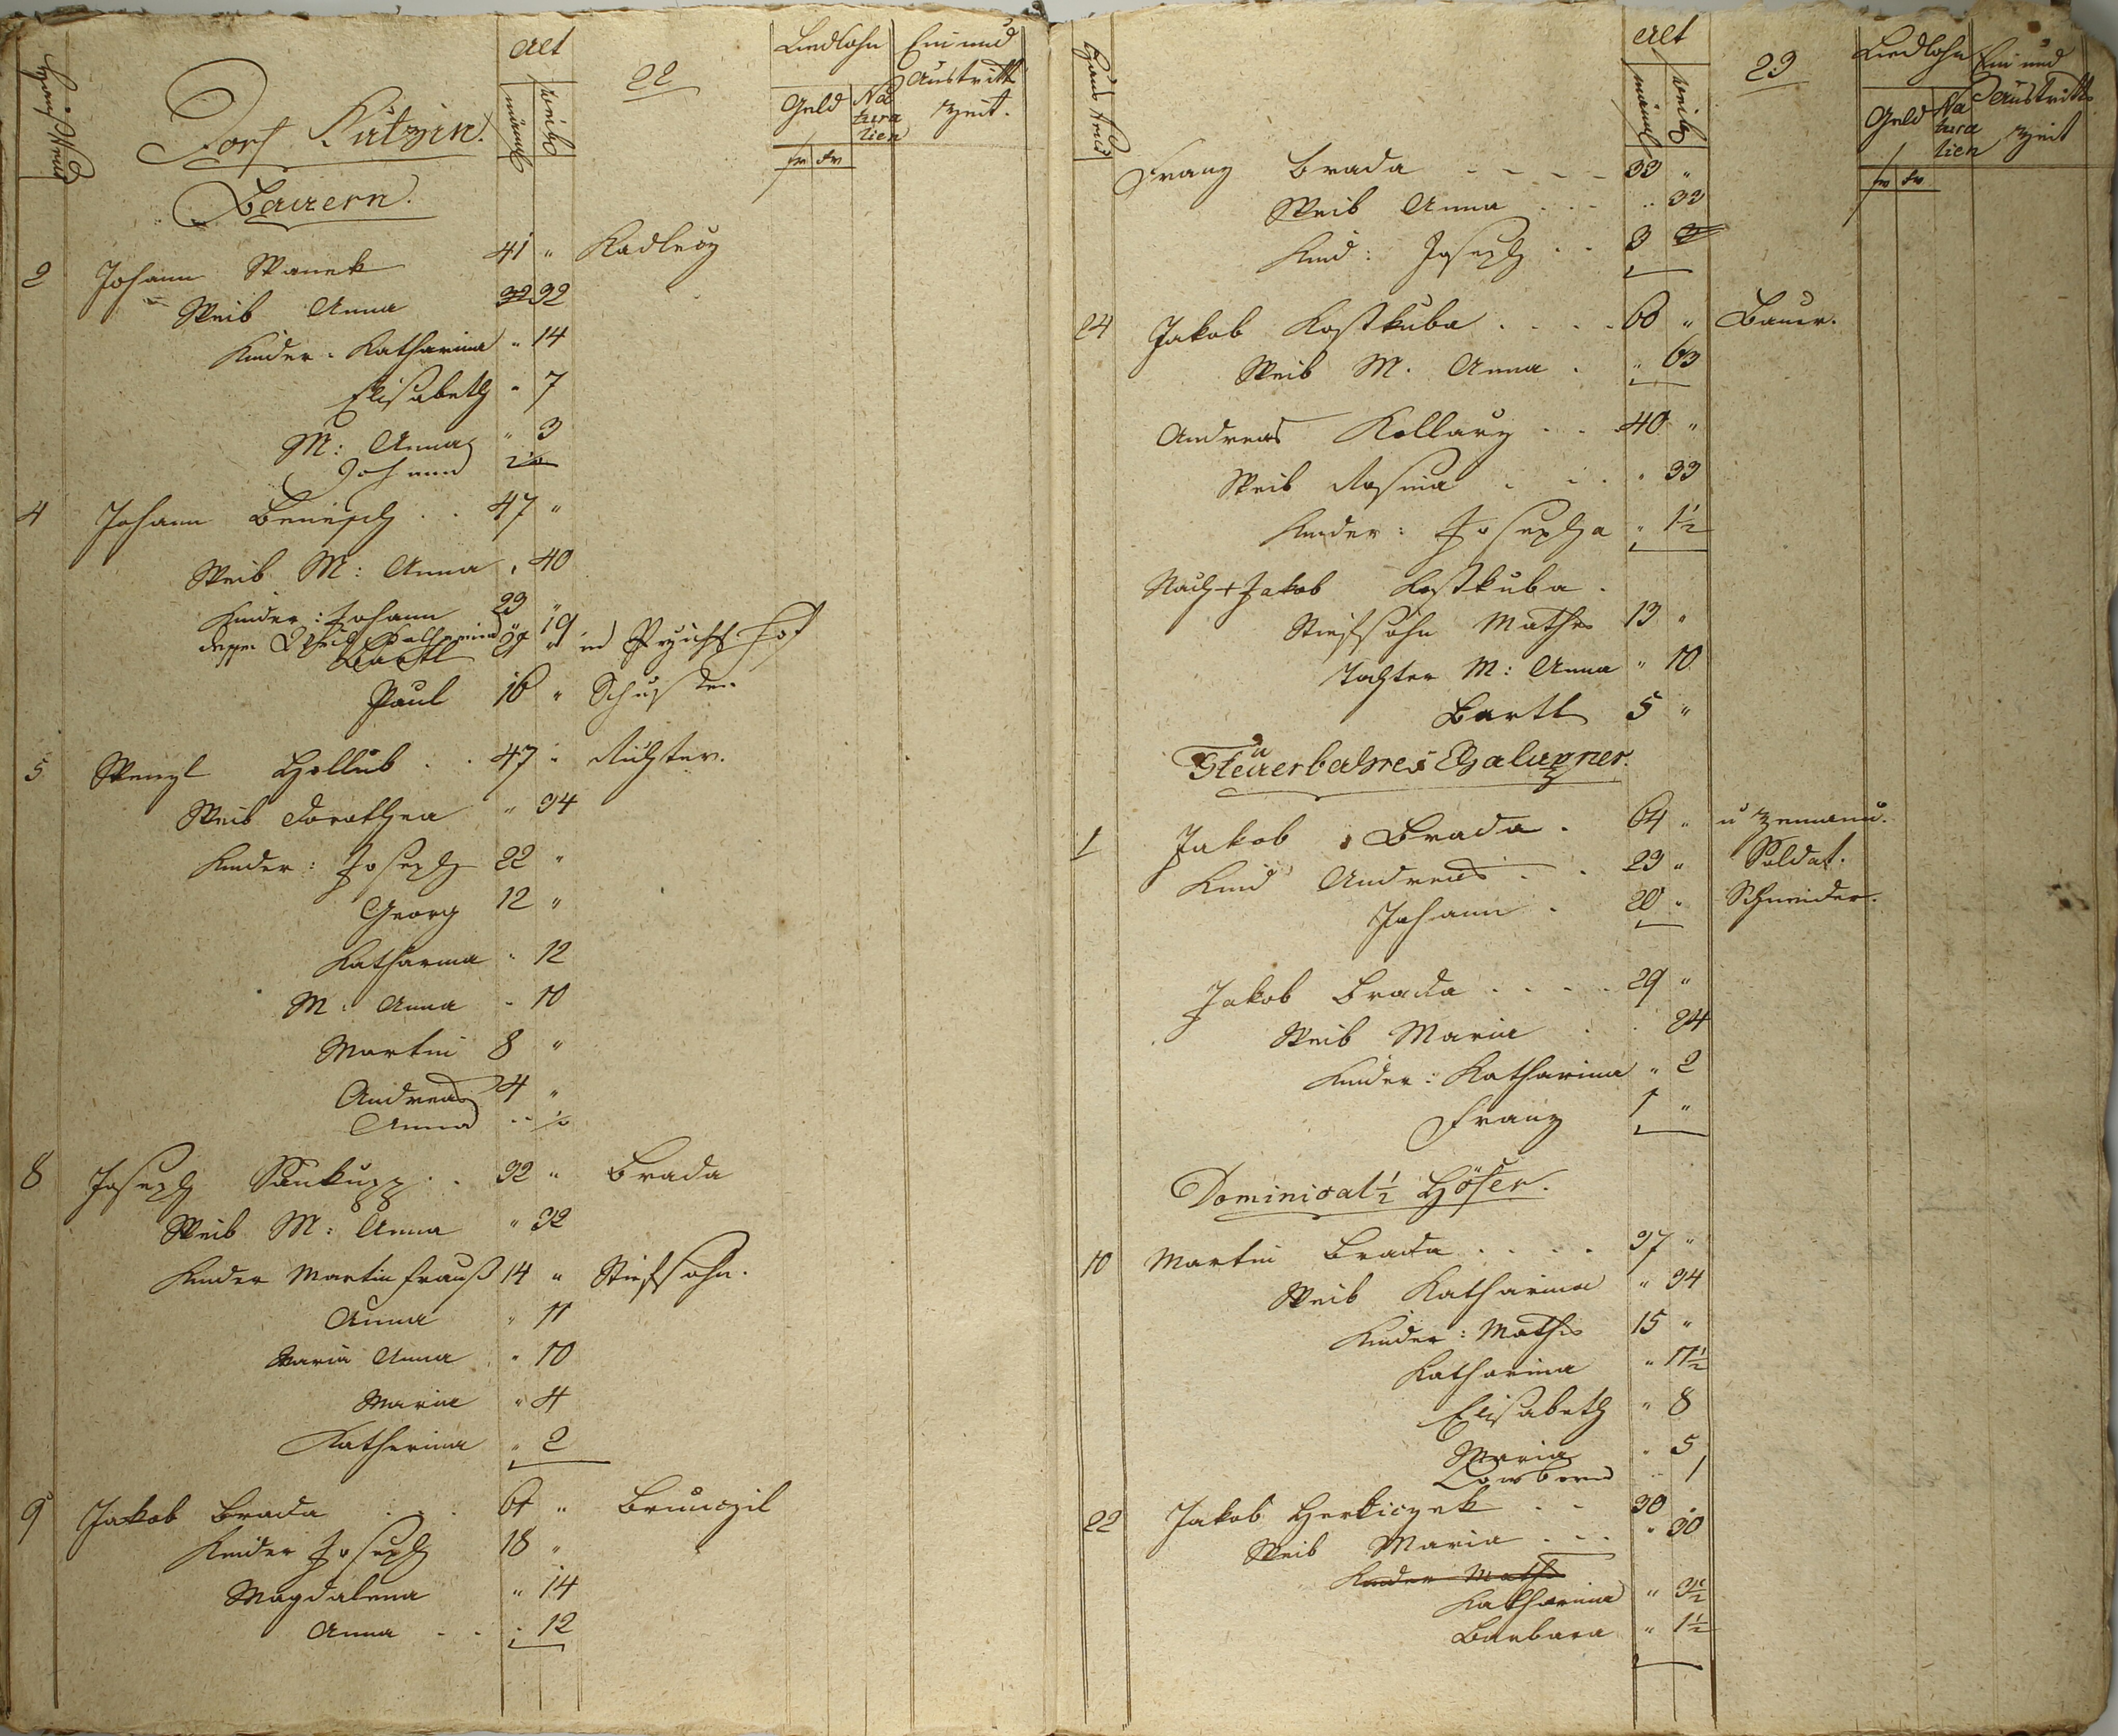 Haus Nrus
alt
männl
weibl
22
Liedlohn
Geld
Na
tura
lien
fr kr
Ein und
Austritts
Zeit.
Dorf Kützin.
Bauern.
2 Johann Wanek 41 " Kadlecz
Weib Anna 32 32
Kinder: Katharina " 14
Elisabeth " 7
M: Anna " 3
Johann
4 Johann Benesch . . 47 "
Weib M: Anna " 40
Kinder: Johann 23 "
dessen Weib Katharina " 19
Bartl
Paul 16 " Schuster
5 Wenzl Hollub . . 47 " Richter.
Weib Dorothea " 34
Kinder: Joseph 22 "
Georg 12 "
Katharina " 12
M: Anna " 10
Martin 8 "
Andreas 4 "
Anna " ½
8 Joseph Saukupp . . 32 " Brada
Weib M: Anna " 32
Kinder Martin 14 " Stiefsohn.
Anna " 11
Maria Anna " 10
Maria " 4
Katharina " 2
9 Jakob Brada . . . 64 " Brunczil
Kinder Joseph 18 "
Magdalena " 14
Anna . . " 12
Haus Nrus
alt
männl
weibl
23
Liedlohn
Geld
Na
tura
lien
fr kr
Ein und
Austritts
Zeit
Franz Brada . . . . 33 "
Weib Anna . . . " 33
Kind: Joseph . . 3
24 Jakob Kostkuba . . . . 66 " Bauer.
Weib M. Anna . " 63
Andreas Kollarz . . . 40 "
Weib Rosina . . . " 33
Kinder: Josepha " 1½
Nach + Jakob Kostkuba .
Stiefsohn Mathes 13 "
Tochter M: Anna " 10
Bartl 5 "
Steuerbahre Chalupner.
1 Jakob Brada . 64 "
Kind Andreas . . 23 " Soldat.
Johann . 20 " Schneider.
Jakob Brada . . . . 29 "
Weib Maria . . 24
Kinder: Katharina " 2
Franz 1 "
Dominical ½ Höfer.
10 Martin Brada . . . . 37 "
Weib Katharina " 34
Kinder: Mathes 15 "
Katharina " 11½
Elisabeth " 8
Maria " 5
1
22 Jakob Herkiczek . . 30 "
Weib Maria . . . " 30
Kinder Mathes
Katharina " 3½
Barbara " 1½